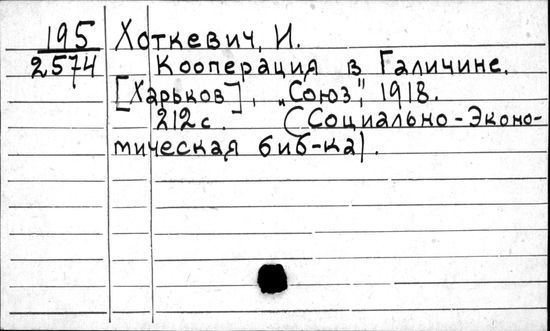 195
2574
Хоткевич, И.
Кооперация в Галичине.
[Харьков], „Союз", 1918.
212 с. (Социально-Эконо-
мическая биб-ка).